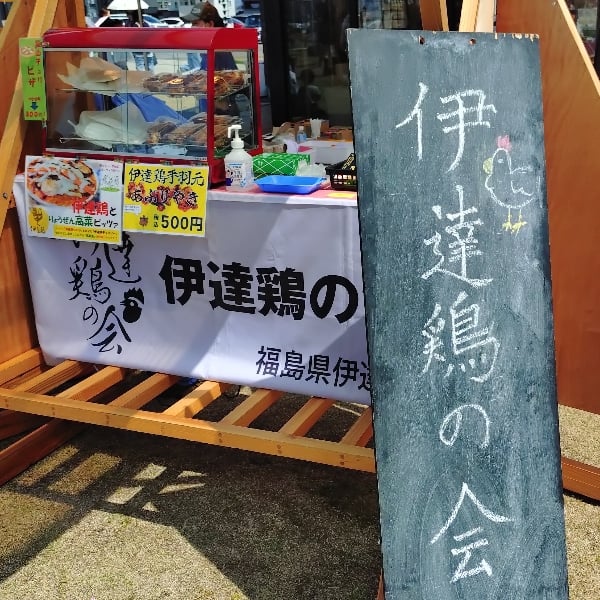 伊達鶏の会
伊達鶏と
りょうぜん高菜ピッツァ
伊達鶏手羽元
500円
伊達鶏の会
伊達鶏の
福島県伊達